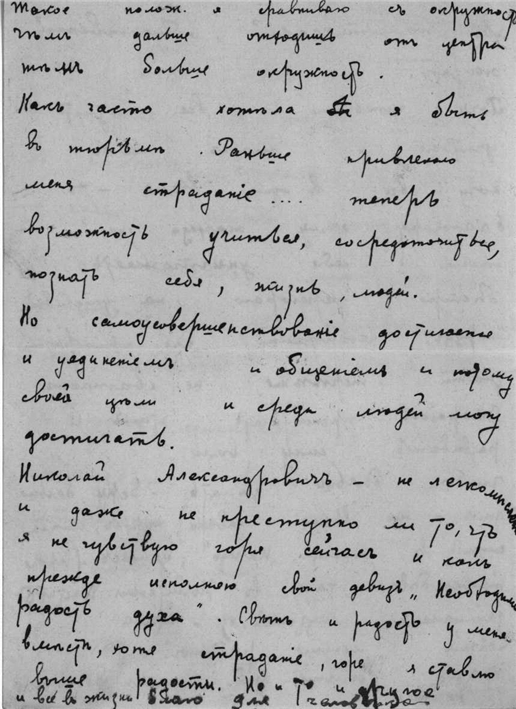 Такое полож. я сравниваю съ окружность
чѣмъ дальше отходишь отъ центра
тѣмъ больше окружность.
Какъ часто хотѣла я быть
въ тюрьмѣ. Раньше привлекало
меня страданіе .... теперь
возможность учиться, сосредоточиться,
познать себя, жизнь, людей.
Но самоусовершенствованіе достижимо
и уединеніемъ и общеніемъ и потому
своей цѣли и среди людей могу
достигать.
Николай Александровичъ – не легкомысленно
и даже не преступно ли то, что
я не чувствую горя сейчасъ и какъ
прежде исполняю свой девизъ „Необходима
радость духа“. Свѣтъ и радость у меня
власть, хотя страданіе, горе я ставлю
выше радости. Но и то и другое
и все въ жизни благо для человѣка